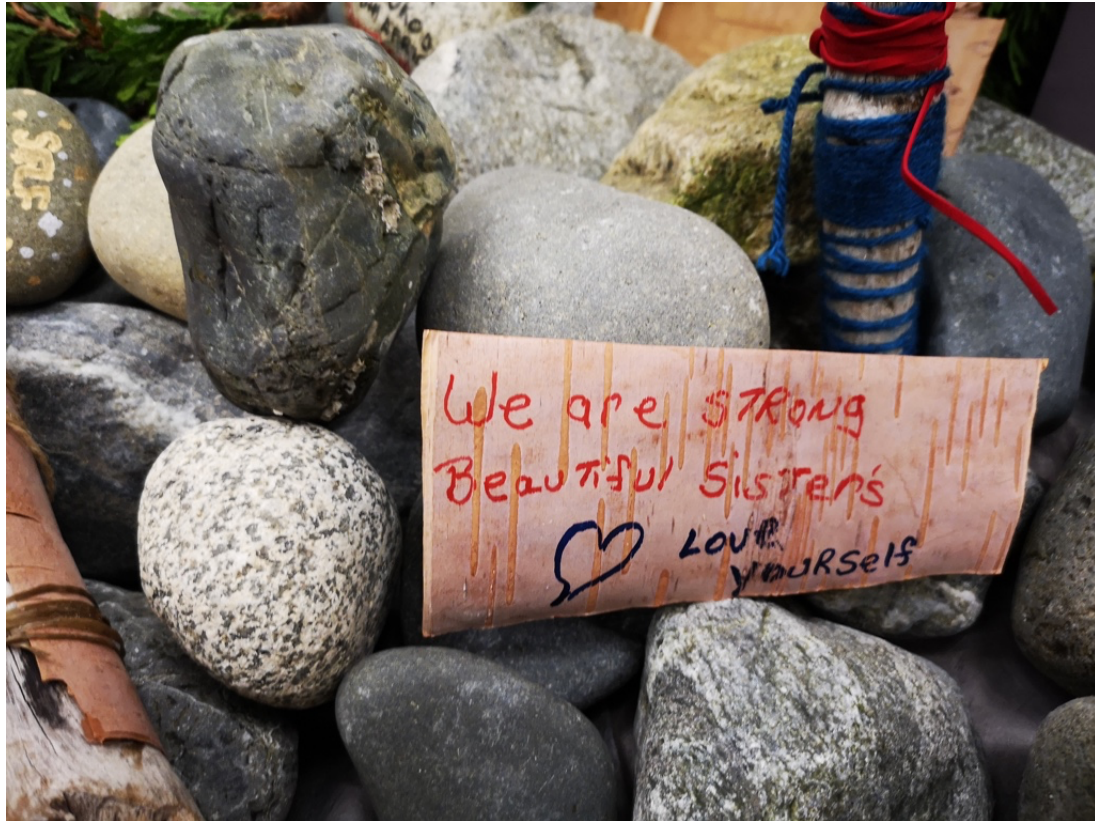 SELF
We are STRONG
Beautiful Sister's
LOVE
YOURSelf